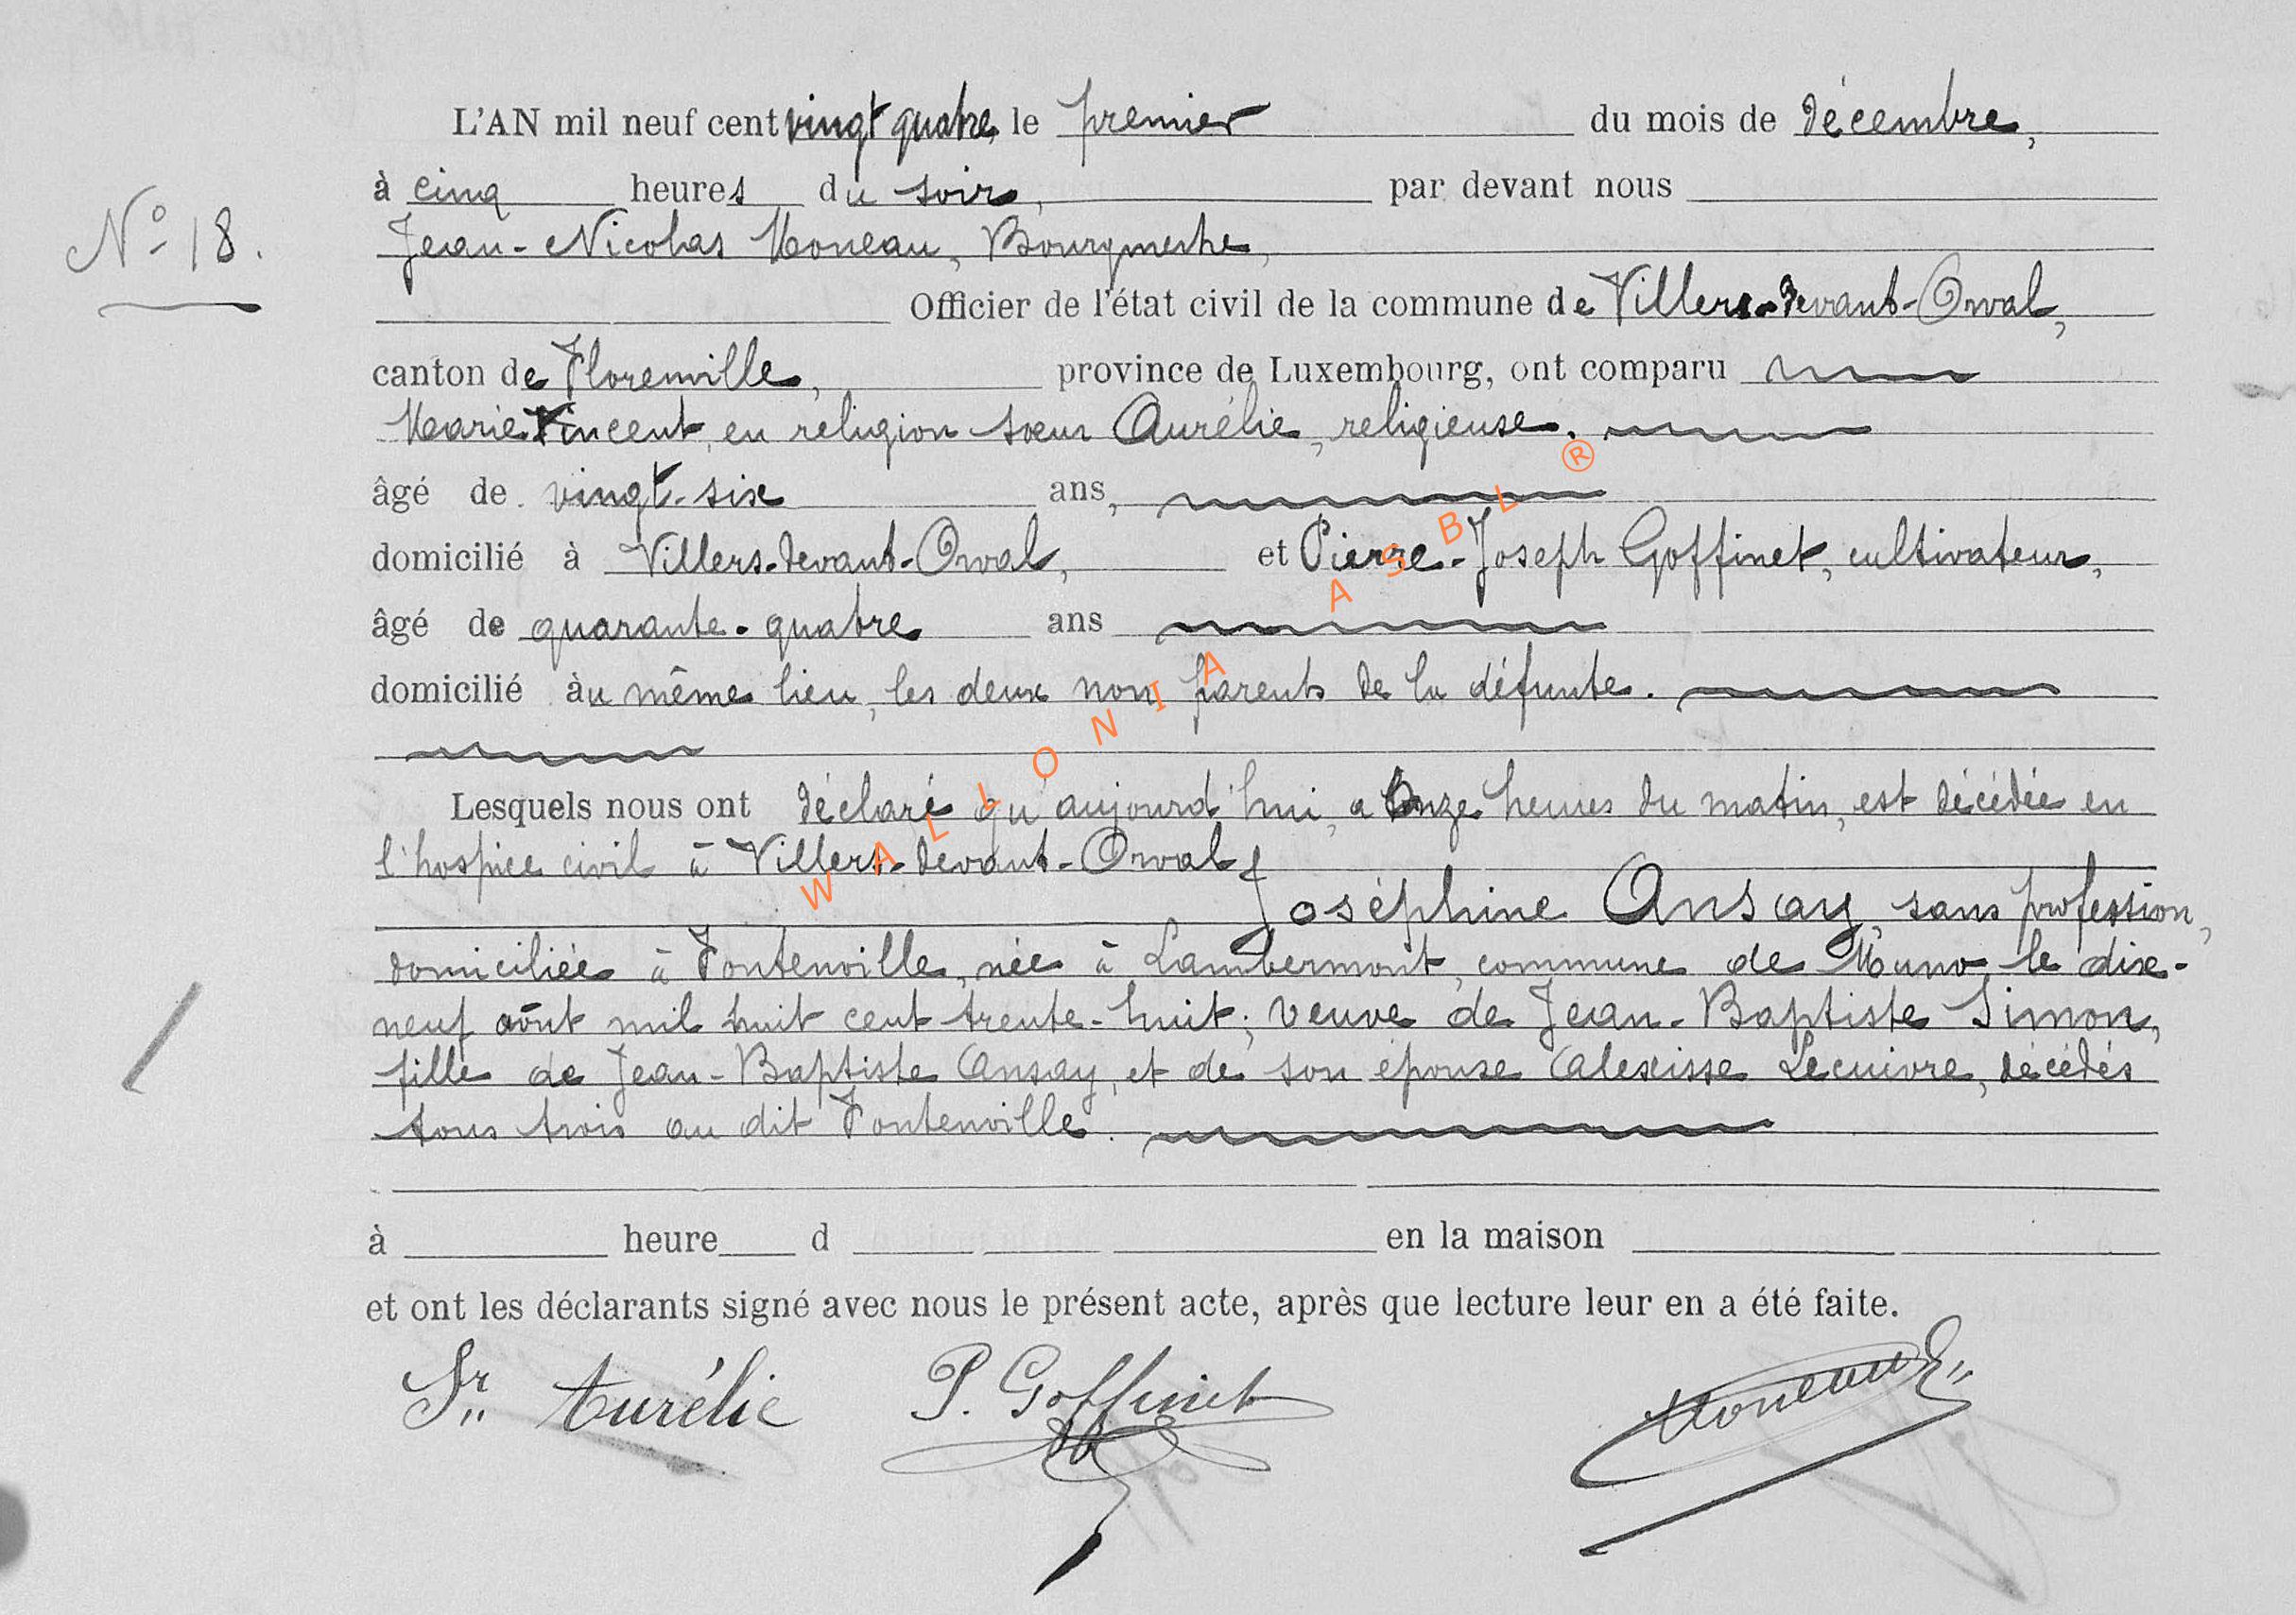 L'AN mil neuf cent vingt quatre le premier du mois de décembre,
à cinq heures du soir, par devant nous
N° 18.
Jean-Nicolas Moneau, Bourgmestre,
Officier de l'état civil de la commune de Villers-devant-Orval,
canton de Florenville, province de Luxembourg, ont comparu
Marie Vincent, en religion sœur Aurélie, religieuse,
âgé de vingt-six ans,
domicilié à Villers-devant-Orval, et Pierre-Joseph Goffinet, cultivateur,
âgé de quarante-quatre ans
domicilié àu même lieu, les deux non parents de la défunte.
Lesquels nous ont déclaré qu'aujourd'hui, a onze heures du matin, est décédée en
l'hospice civil à Villers-devant-Orval
Joséphine Ansay, sans profession,
domiciliée à Fontenoille, née à Lambermont, commune de Muno, le dix-
neuf août mil huit cent trente-huit; veuve de Jean-Baptiste Simon,
fille de Jean-Baptiste Ansay, et de son épouse Alexisse Lecuivre, décédés
tous trois au dit Fontenoille.
à heure d en la maison
et ont les déclarants signé avec nous le présent acte, après que lecture leur en a été faite.
Sr Aurélie P. Goffinet Moneau
WALLONIA ASBL ®